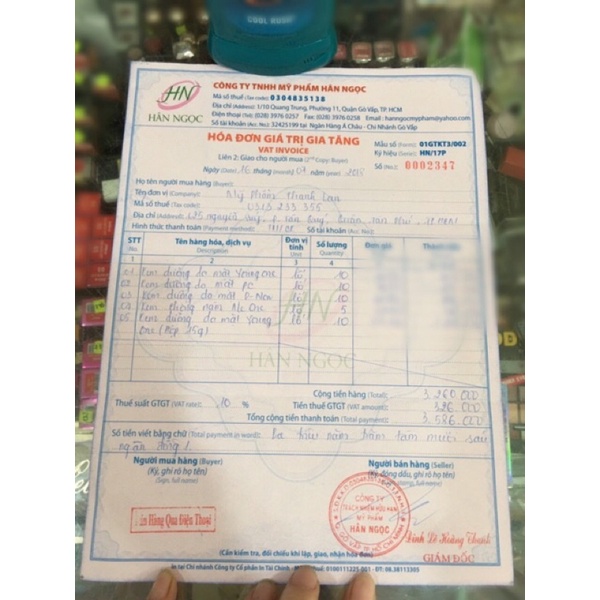 COOL
HN
HÂN NGỌC
CÔNG TY TNHH MỸ PHẨM HÂN NGỌC
Mã số thuế (Tax code): 0304835138
Địa chỉ (Address): 1/10 Quang Trung, Phường 11, Quận Gò Vấp, TP. HCM
Điện thoại (Tel): (028) 3976 0257 Fax: (028) 3976 0258 Email: hanngocmypham@yahoo.com
Số tài khoản (Acc. Nos): 32425199 tại Ngân Hàng Á Châu - Chi Nhánh Gò Vấp
HÓA ĐƠN GIÁ TRỊ GIA TĂNG
VAT INVOICE
Liên 2: Giao cho người mua (2nd Copy Buyer)
Mẫu số (Form): 01GTKT3/002
Ký hiệu (Serial): HN/17P
Số (No.): 0002347
Ngày (Date) 16 tháng (month) 07 năm (year)
Họ tên người mua hàng (Buyer):
Tên đơn vị (Company): Mỹ Phẩm Thanh Lan
Mã số thuế (Tax code): 0313 233 355
Địa chỉ (Address):
Hình thức thanh toán (Payment method): Số tài khoản (Acc. Nos):
STT No. Tên hàng hóa, dịch vụ Description Đơn vị tính Unit Số lượng Quantity
1 2 3 4
01 Kem dưỡng da mặt Young One lọ 10
02 Kem dưỡng da mặt lọ 10
03 Kem dưỡng da mặt lọ 10
04 Kem 5
05 Kem dưỡng da mặt Young lọ 10
One (Hộp 25g)
HN
HÂN NGỌC
Cộng tiền hàng (Total): 3.260.000
Thuế suất GTGT (VAT rate): 10 % Tiền thuế GTGT (VAT amount): 326.000
Tổng cộng tiền thanh toán (Total payment): 3.586.000
Số tiền viết bằng chữ (Total payment in word): Ba triệu năm trăm tám mươi sáu
ngàn đồng
Người mua hàng (Buyer) Người bán hàng (Seller)
(Ký, ghi rõ họ tên) (Ký, đóng dấu, ghi rõ họ tên)
(Sign, full name)
Bán Hàng Qua Điện Thoại
CÔNG TY
TRÁCH NHIỆM HỮU HẠN
MỸ PHẨM
HÂN NGỌC
Đinh Lê Hoàng Thanh
GIÁM ĐỐC
(Cần kiểm tra, đối chiếu khi lập, giao, nhận hóa đơn)